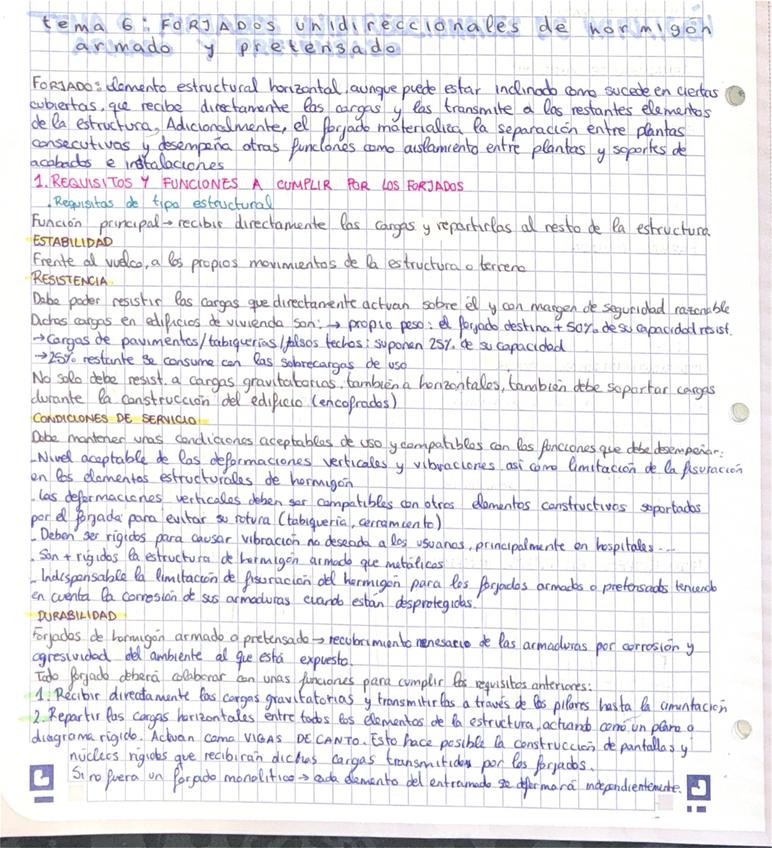 tema 6: FORJADOS unidireccionales de hormigón
armado y pretensado
FORJADO: elemento estructural horizontal, aunque puede estar inclinado como sucede en ciertas
cubiertas, que recibe directamente las cargas y las transmite a los restantes elementos
de la estructura. Adicionalmente, el forjado materializa la separación entre plantas
consecutivas y desempeña otras funciones como aislamiento entre plantas y soportes de
acabados e instalaciones
1. REQUISITOS Y FUNCIONES A CUMPLIR POR LOS FORJADOS
. Requisitos de tipo estructural
Función principal → recibir directamente las cargas y repartirlas al resto de la estructura.
ESTABILIDAD
Frente al vuelco, a los propios movimientos de la estructura o terreno
RESISTENCIA
Debe poder resistir las cargas que directamente actuan sobre él y con margen de seguridad razonable
Dichas cargas en edificios de vivienda son: → propio peso: el forjado destina + 50% de su capacidad resist.
→ Cargas de pavimentos/tabiquerías/falsos techos: suponen 25% de su capacidad
→ 25% restante se consume con las sobrecargas de uso
No solo debe resist. a cargas gravitatorias, también a horizontales, también debe soportar cargas
durante la construcción del edificio (encofrados)
CONDICIONES DE SERVICIO
Debe mantener unas condiciones aceptables de uso y compatibles con las funciones que debe desempeñar:
- Nivel aceptable de las deformaciones verticales y vibraciones, así como limitación de la fisuración
en los elementos estructurales de hormigón
- Las deformaciones verticales deben ser compatibles con otros elementos constructivos soportados
por el forjado para evitar su rotura (tabiquería, cerramiento)
- Deben ser rígidos para causar vibración no deseada a los usuarios, principalmente en hospitales...
- Son + rígidos la estructura de hormigón armado que metálicos
- Indispensable la limitación de fisuración del hormigón para los forjados armados o pretensados teniendo
en cuenta la corrosión de sus armaduras cuando están desprotegidas.
DURABILIDAD
Forjados de hormigón armado o pretensado → recubrimiento nenesario de las armaduras por corrosión y
agresividad del ambiente al que está expuesto.
Todo forjado deberá colaborar con unas funciones para cumplir los requisitos anteriores:
1. Recibir directamente las cargas gravitatorias y transmitirlas a través de los pilares hasta la cimentación
2. Repartir las cargas horizontales entre todos los elementos de la estructura, actuando como un plano o
diagrama rígido. Actúan como VIGAS DE CANTO. Esto hace posible la construcción de pantallas y
núcleos rígidos que recibirán dichas cargas transmitidas por los forjados.
Si no fuera un forjado monolítico → cada elemento del entramado se deformará independientemente.